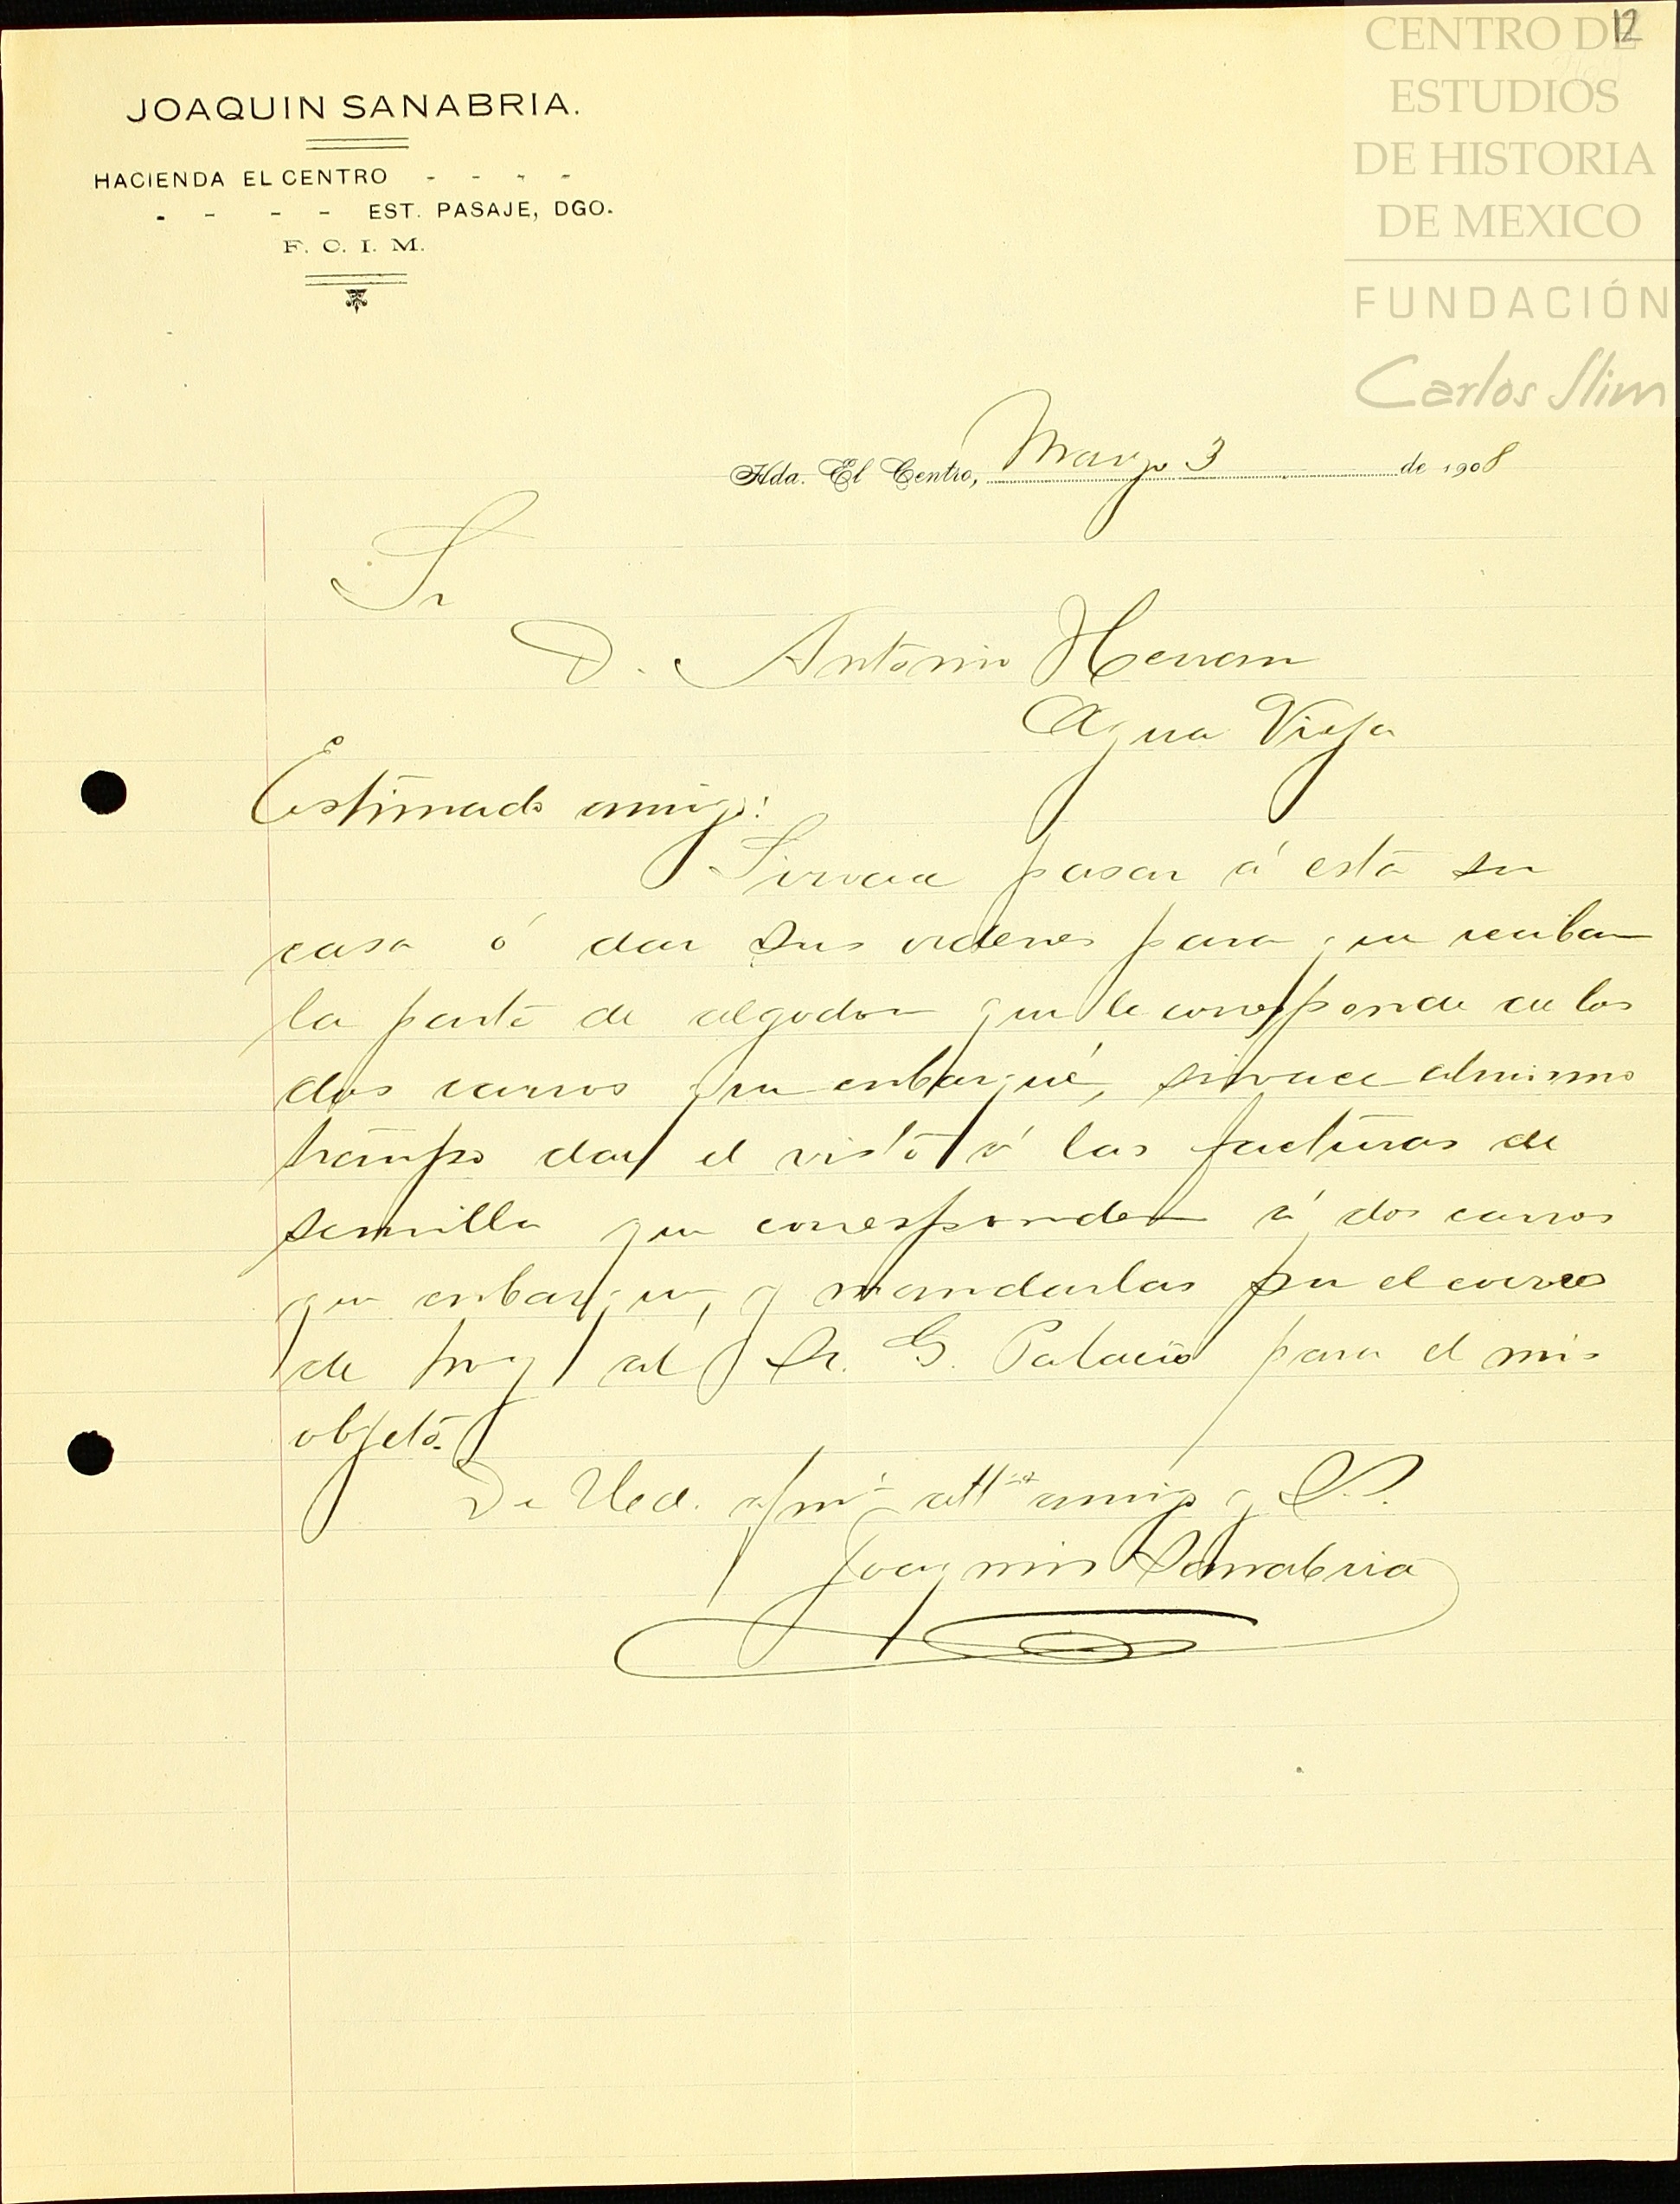 12
CENTRO DE
ESTUDIOS
DE HISTORIA
DE MEXICO
FUNDACIÓN
Carlos Slim
JOAQUIN SANABRIA.
HACIENDA EL CENTRO - - - -
- - - - EST. PASAJE, DGO.
F. C. I. M.
Hda. El Centro, Marzo 3 de 1908
Sr
D. Antonio Herran
Agua Vieja
Estimado amigo:
Sirvace pasar á esta su
casa ó dar sus ordenes para que reciban
la parte de algodon que le corresponde de los
dos carros que enbarqué, sirvace almismo
tiempo dar el visto á las facturas de
semilla que corresponden á dos carros
que enbarque, y mandarlas por el correo
de hoy al Sr. G. Palacio para el mis
objeto.
De Ud. afmo atto amigo y S.S.
Joaquin Sanabria